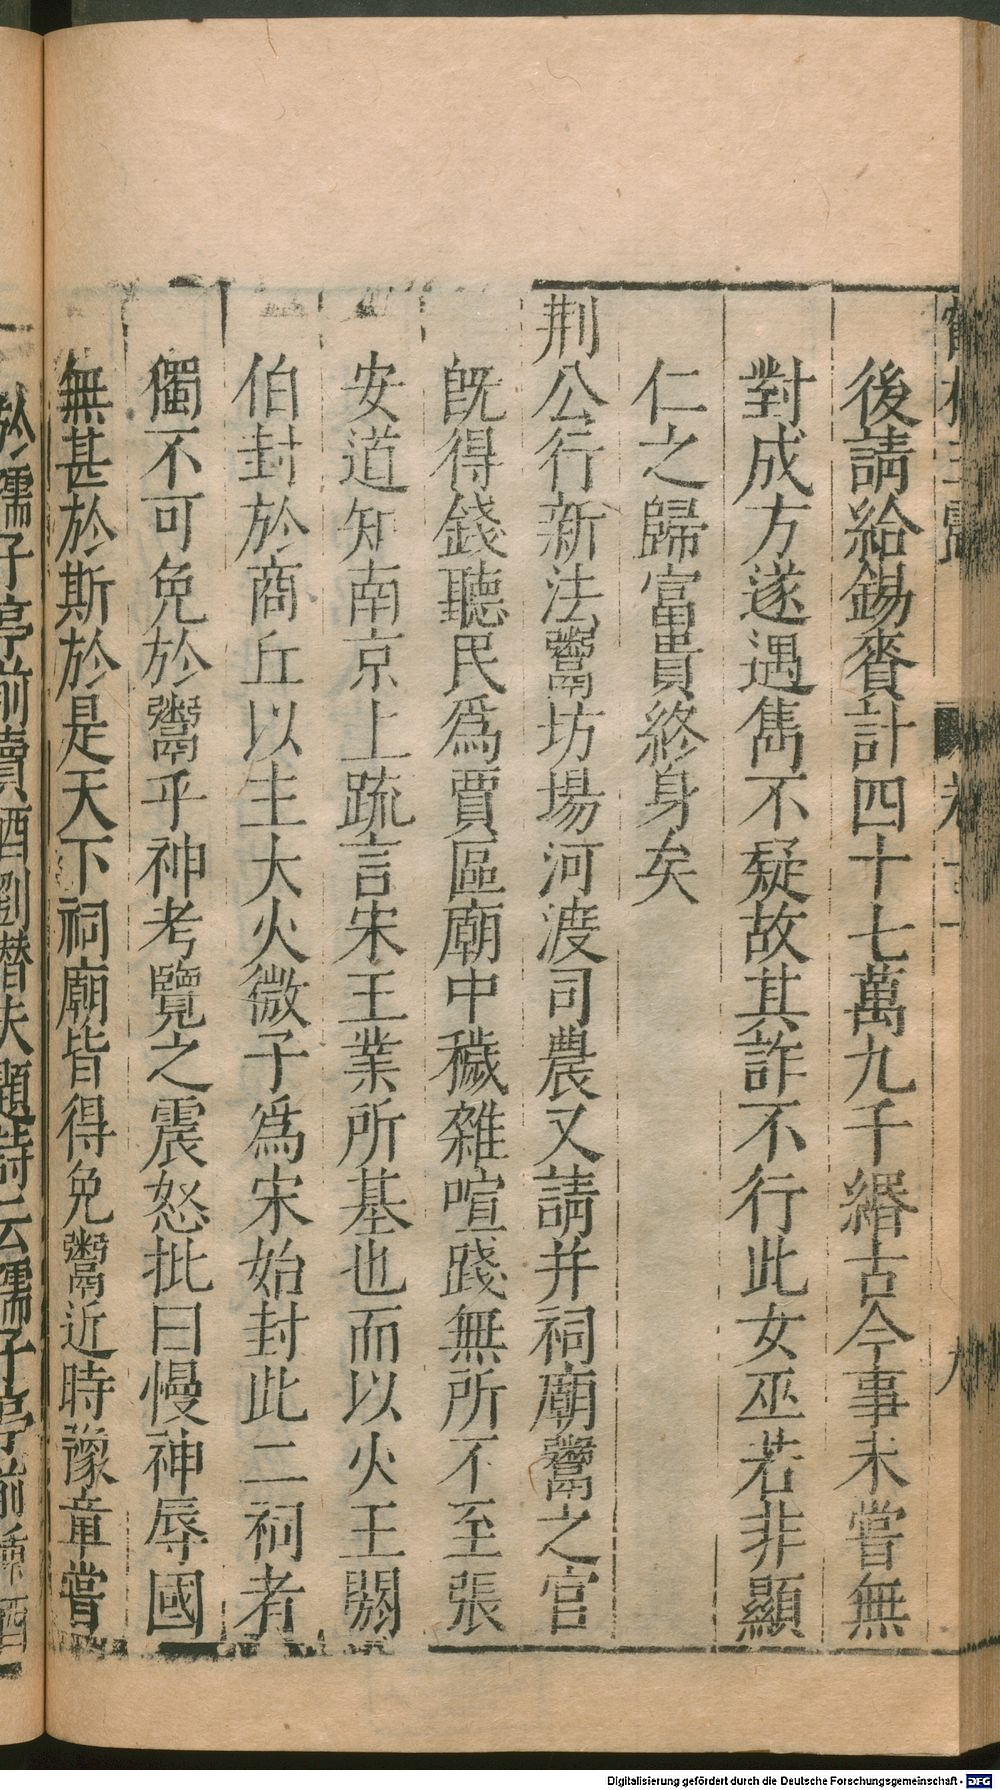 後請給錫賚計四十七萬九千緡古今事未嘗無
對成方遂遇雋不疑故其詐不行此女巫若非顯
仁之歸富貴終身矣
荆公行新法鬻坊場河渡司農又請并祠廟鬻之官
旣得錢聽民爲賈區廟中穢雜喧踐無所不至張
安道知南京上疏言宋王業所基也而以火王閼
伯封於商丘以主大火微子爲宋始封此二祠者
獨不可免於鬻乎神考覽之震怒批曰慢神辱國
無甚於斯於是天下祠廟皆得免鬻近時豫章嘗
於孺子亭前賣酒劉潛夫題詩云孺子亭前
Digitalisierung gefördert durch die Deutsche Forschungsgemeinschaft - DFG